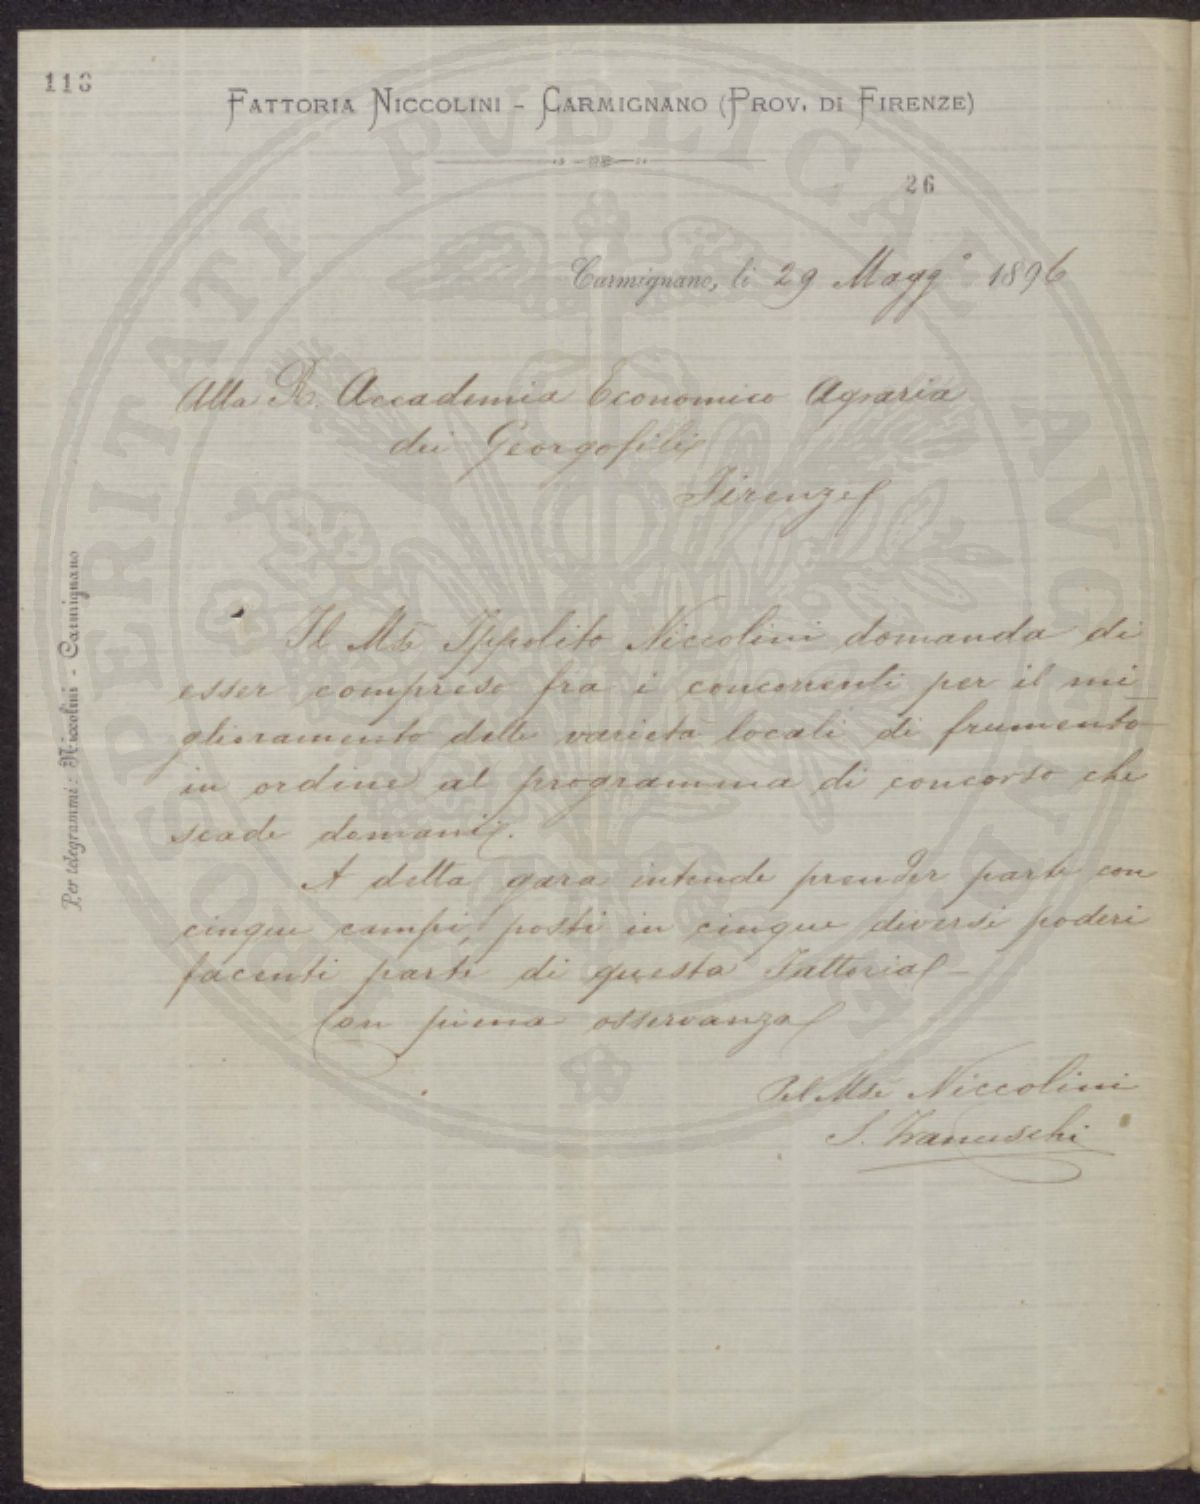 113
FATTORIA NICCOLINI - CARMIGNANO (PROV. DI FIRENZE)
26
Carmignano, li 29 Magg° 1896
Alla R. Accademia Economico Agraria
dei Georgofili
Firenze
Il Mse Ippolito Niccolini domanda di
esser compreso fra i concorrenti per il mi
glioramento delle varietà locali di frumento
in ordine al programma di concorso che
scade domani.
A detta gara intende prender parte con
cinque campi, posti in cinque diversi poderi
facenti parte di questa Fattoria
Con piena osservanza
Pel Mse Niccolini
S.
Per telegrammi: Niccolini - Carmignano
PROSPERITATI PVBLICAE AVGENDAE